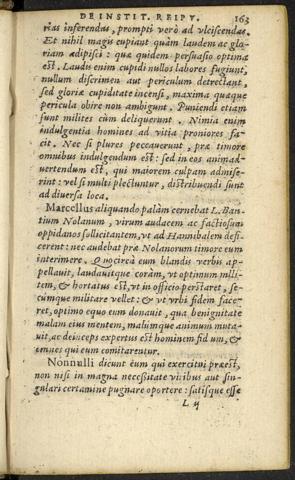 DE INSTIT. REIPV. 163
rias inferendas, prompti verò ad vlciscendas.
Et nihil magis cupiant quàm laudem ac glo
riam adipisci: quæ quidem persuasio optima
est. Laudis enim cupidi nullos labores fugiunt,
nullum discrimen aut periculum detrectant,
sed gloriæ cupiditate incensi, maxima quæque
pericula obire non ambigunt. Puniendi etiam
sunt milites cùm deliquerunt. Nimia enim
indulgentia homines ad vitia proniores fa-
cit. Nec si plures peccauerunt, præ timore
omnibus indulgendum est: sed in eos animad-
uertendum est, qui maiorem culpam admise-
rint: vel si multi plectuntur, distribuendi sunt
ad diuersa loca.
Marcellus aliquando palàm cernebat L. Ban
tium Nolanum, virum audacem ac factiosum
oppidanos sollicitantem, vt ad Hannibalem defi-
cerent: nec audebat præ Nolanorum timore eum
interimere. Quocircà eum blandis verbis ap-
pellauit, laudauitque coràm, vt optimum mili-
tem, & hortatus est, vt in officio perstaret, se-
cumque militare vellet: & vt vrbi fidem face-
ret, optimo equo eum donauit, qua benignitate
malam eius mentem, malúmque animum muta-
uit, ac deinceps expertus est hominem fidum, &
omnes qui eum comitarentur.
Nonnulli dicunt eum qui exercitui præest,
non nisi in magna necessitate viribus aut sin-
gulari certamine pugnare oportere: satisque esse
L ij